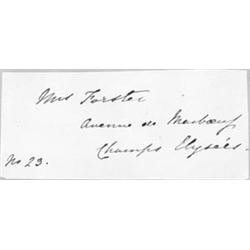 Mrs Forster
Avenue de Marboeuf
Champs Elysées.
No 23.